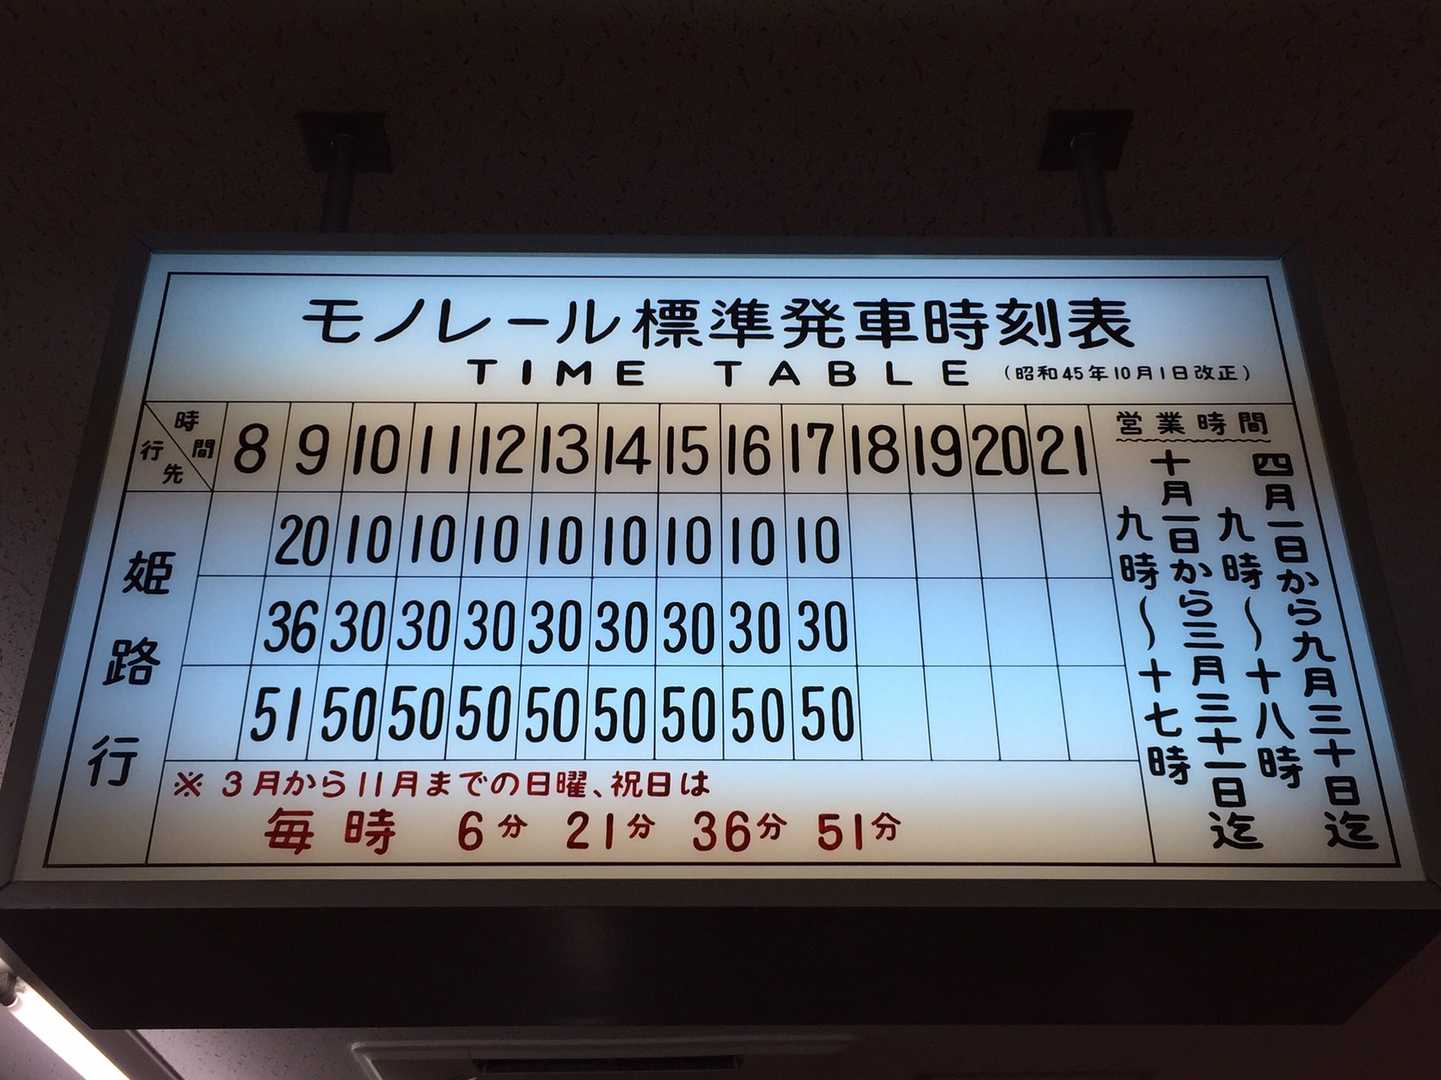 モノレール標準発車時刻表
TIME TABLE (昭和45年10月1日改正)
時間
行先
8 9 10 11 12 13 14 15 16 17 18 19 20 21
姫路行
20 10 10 10 10 10 10 10 10
36 30 30 30 30 30 30 30 30
51 50 50 50 50 50 50 50 50
※ 3月から11月までの日曜、祝日は
毎時 6分 21分 36分 51分
営業時間
四月一日から九月三十日迄
九時〜十八時
十月一日から三月三十一日迄
九時〜十七時